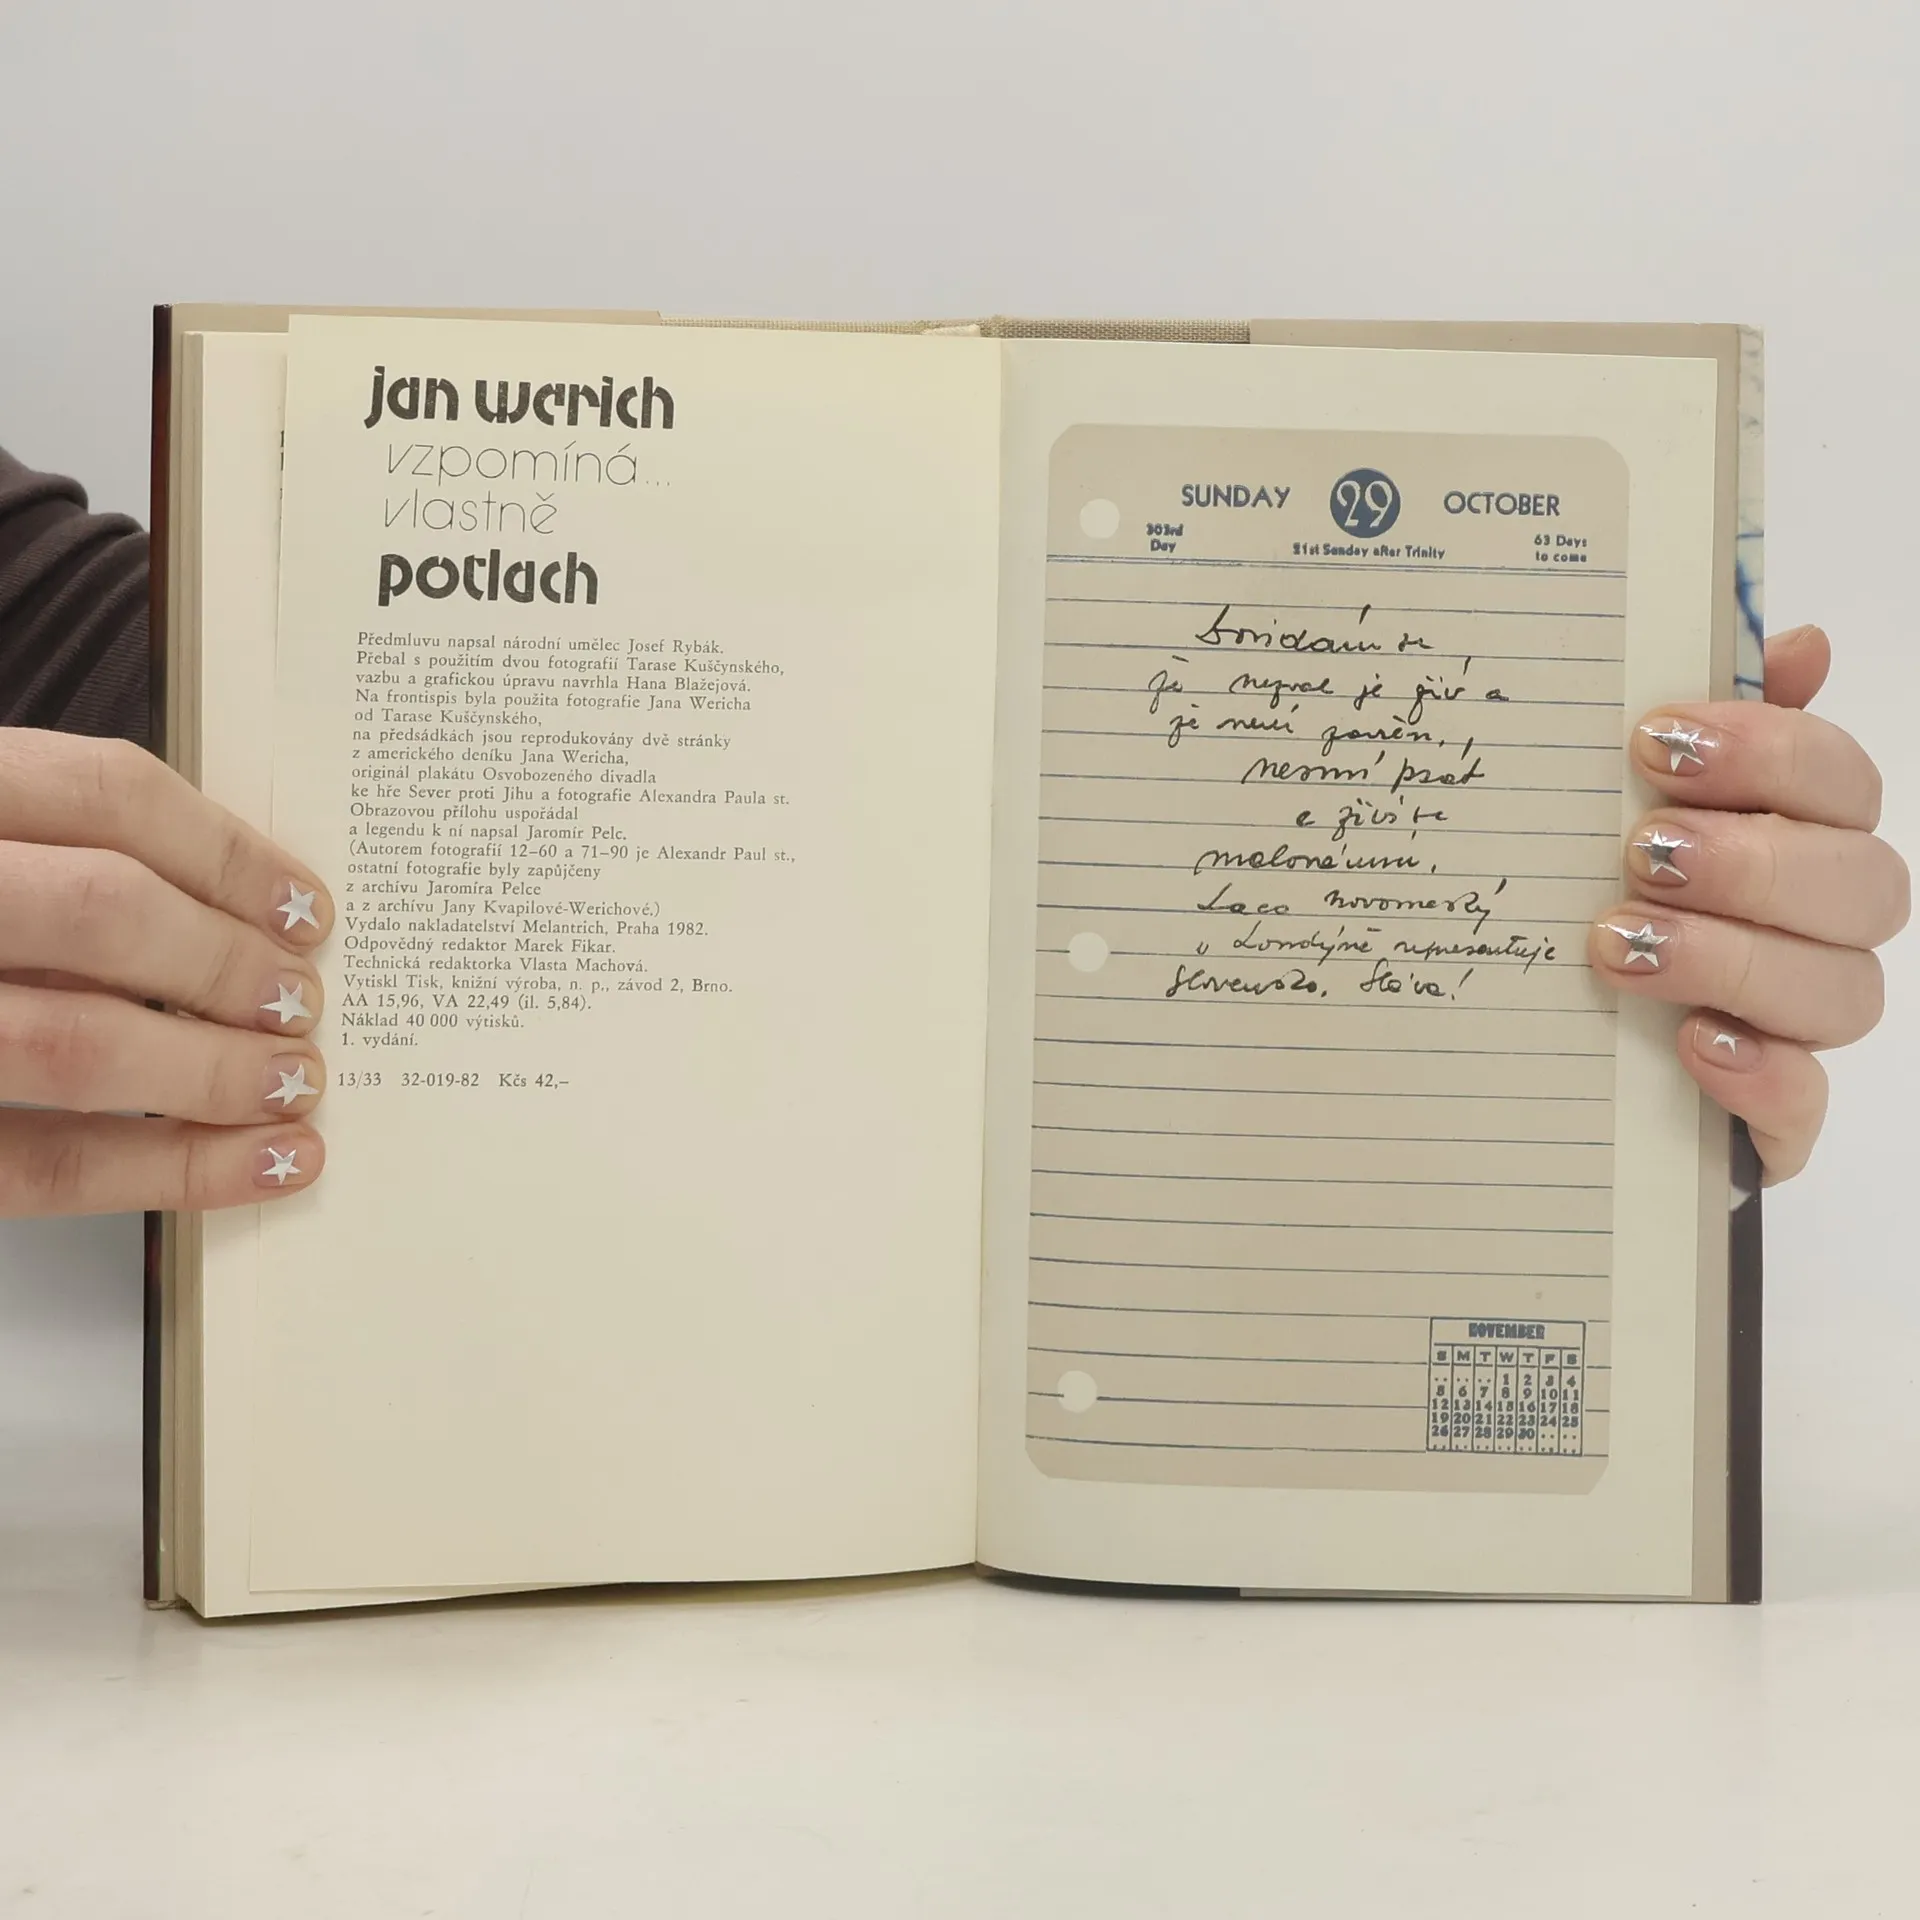 jan werich
vzpomíná...
vlastně
potlach
Předmluvu napsal národní umělec Josef Rybák.
Přebal s použitím dvou fotografií Tarase Kuščynského,
vazbu a grafickou úpravu navrhla Hana Blažejová.
Na frontispis byla použita fotografie Jana Wericha
od Tarase Kuščynského,
na předsádkách jsou reprodukovány dvě stránky
z amerického deníku Jana Wericha,
originál plakátu Osvobozeného divadla
ke hře Sever proti Jihu a fotografie Alexandra Paula st.
Obrazovou přílohu uspořádal
a legendu k ní napsal Jaromír Pelc.
(Autorem fotografií 12–60 a 71–90 je Alexandr Paul st.,
ostatní fotografie byly zapůjčeny
z archívu Jaromíra Pelce
a z archívu Jany Kvapilové-Werichové.)
Vydalo nakladatelství Melantrich, Praha 1982.
Odpovědný redaktor Marek Fikar.
Technická redaktorka Vlasta Machová.
Vytiskl Tisk, knižní výroba, n. p., závod 2, Brno.
AA 15,96, VA 22,49 (il. 5,84).
Náklad 40 000 výtisků.
1. vydání.
13/33 32-019-82 Kčs 42,–
SUNDAY 29 OCTOBER
303rd Day 21st Sunday after Trinity 63 Days to come
se
že nezval je živ a
že není zavřen,
nesmí psát
a živí se
Laco novomeský
v Londýně representuje
Slovensko. Sláva!
NOVEMBER
S M T W T F S
.. .. .. 1 2 3 4
5 6 7 8 9 10 11
12 13 14 15 16 17 18
19 20 21 22 23 24 25
26 27 28 29 30 .. ..
.. .. .. .. .. .. ..